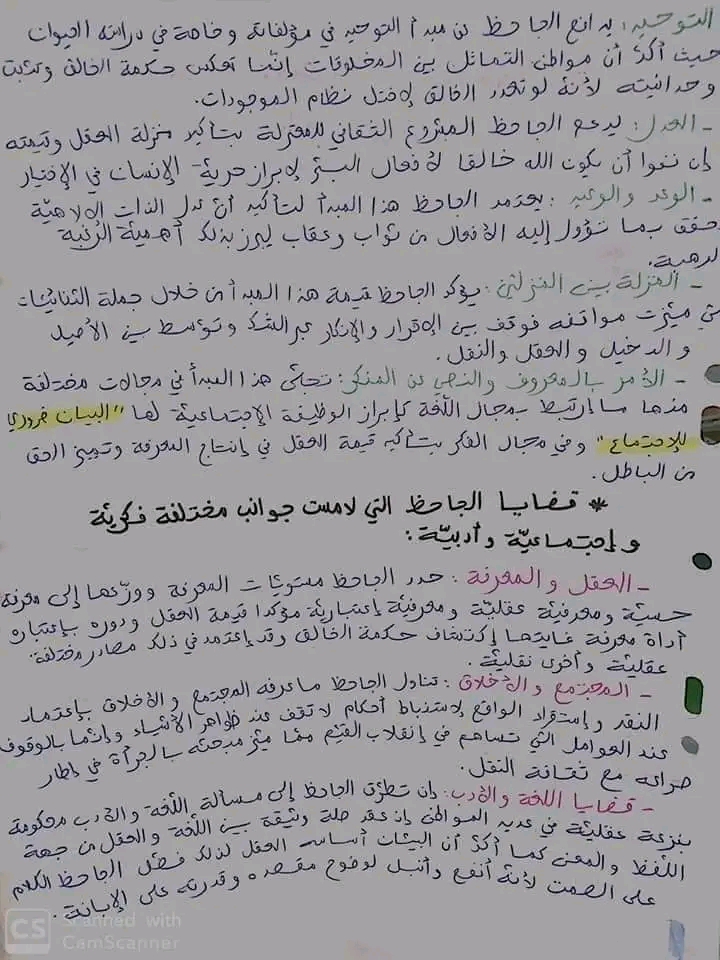 التوحيد: يدافع الجاحظ عن مبدأ التوحيد في مؤلفاته وخاصة في دراسته الحيوان
حيث أكدّ أن مواطن التماثل بين المخلوقات إنّما تعكس حكمة الخالق وتثبت
وحدانيته لأنّه لو تعدد الخالق لاختل نظام الموجودات.
- العدل: يدعم الجاحظ المشروع الثقافي للمعتزلة بتأكيد منزلة العقل وقيمته
إن نفوا أن يكون الله خالقا لأفعال البشر لإبراز حرية الإنسان في الإختيار
- الوعد والوعيد: يعتمد الجاحظ هذا المبدأ لتأكيد أنّ عدل الذات الالاهيّة
تحقق بما تؤول إليه الأفعال من ثواب وعقاب ليبرز بذلك أهميّة الرّغبة
الرهبة.
- المنزلة بين المنزلتين: يؤكد الجاحظ قيمة هذا المبدأ من خلال جملة الثنائيّات
ميّزت مواقفه فوقف بين الإقرار والإنكار عبر الشك وتوسط بين الأصيل
والدخيل والعقل والنقل.
- الأمر بالمعروف والنهي عن المنكر: تجلى هذا المبدأ في مجالات مختلفة
منها ما ارتبط بمجال اللّغة كإبراز الوظيفة الإجتماعيّة لها "البيان ضروري
للإجتماع" وفي مجال الفكر بتأكيد قيمة العقل في إنتاج المعرفة وتمييز الحق
من الباطل.
* قضايا الجاحظ التي لامست جوانب مختلفة فكريّة
وإجتماعيّة وأدبيّة:
- العقل والمعرفة: حدد الجاحظ مستويّات المعرفة ووزّعها إلى معرفة
حسيّة ومعرفيّة عقليّة ومعرفيّة إعتباريّة مؤكدا قيمة العقل ودوره بإعتباره
أداة معرفة غايتها إكتشاف حكمة الخالق وقد إعتمد في ذلك مصادر مختلفة
عقليّة وأخرى نقليّة.
- المجتمع والأخلاق: تناول الجاحظ ما عرفه المجتمع والأخلاق بإعتماد
النقد وإستقراء الواقع لإستنباط أحكام لا تقف عند ظواهر الأشياء وإنّما بالوقوف
عند العوامل التي تساهم في إنقلاب القيم ممّا ميّز مبحثه بالجرأة في إطار
صراعه مع ثقافة النقل.
- قضايا اللغة والأدب: إن تطرّق الجاحظ إلى مسألة اللّغة والأدب محكومة
بنزعة عقليّة في عديد المواطن إذ عقد صلة وثيقة بين اللّغة والعقل من جهة
اللّفظ والمعنى كما أكدّ أن البيان أساسه العقل لذلك فضّل الجاحظ الكلام
على الصمت لأنّه أنفع وأنبل لوضوح مقصده وقدرته على الإبانة.
CS Scanned with
CamScanner